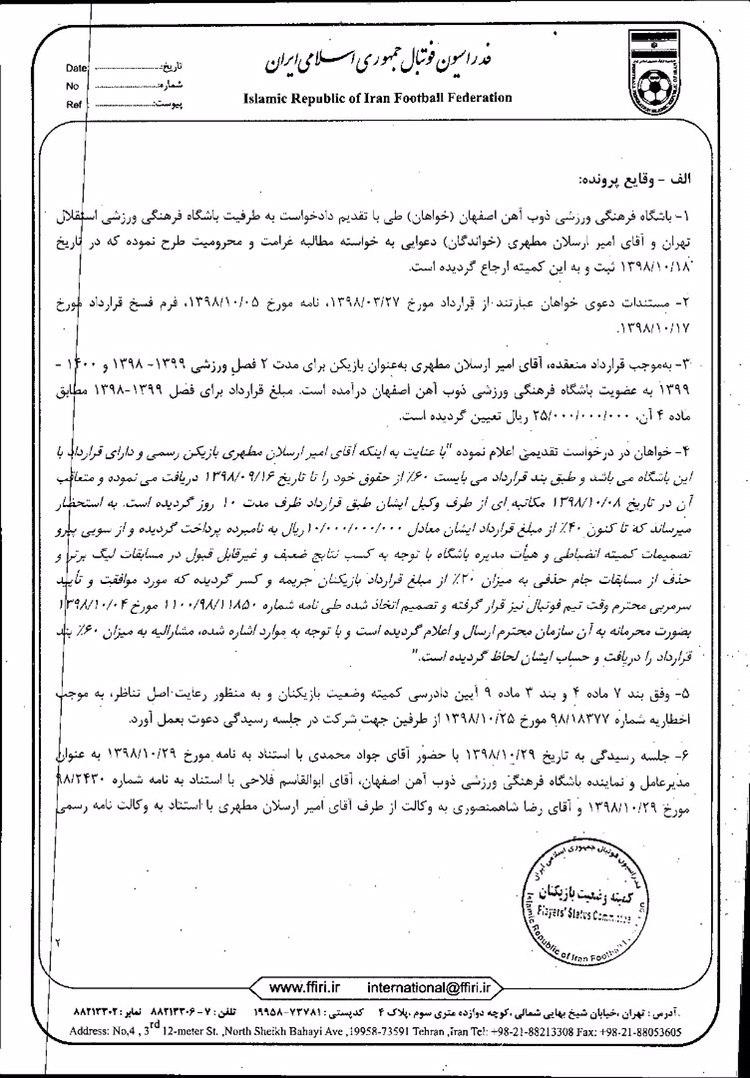 فدراسیون فوتبال جمهوری اسلامی ایران
Islamic Republic of Iran Football Federation
Date تاریخ:
No شماره:
Ref پیوست:
الف - وقایع پرونده:
۱- باشگاه فرهنگی ورزشی ذوب آهن اصفهان (خواهان) طی با تقدیم دادخواست به طرفیت باشگاه فرهنگی ورزشی استقلال
تهران و آقای امیر ارسلان مطهری (خواندگان) دعوایی به خواسته مطالبه غرامت و محرومیت طرح نموده که در تاریخ
۱۳۹۸/۱۰/۱۸ ثبت و به این کمیته ارجاع گردیده است.
۲- مستندات دعوی خواهان عبارتند از قرارداد مورخ ۱۳۹۸/۰۳/۲۷، نامه مورخ ۱۳۹۸/۱۰/۰۵، فرم فسخ قرارداد مورخ
۱۳۹۸/۱۰/۱۷.
۳- به‌موجب قرارداد منعقده، آقای امیر ارسلان مطهری به‌عنوان بازیکن برای مدت ۲ فصل ورزشی ۱۳۹۹- ۱۳۹۸ و ۱۴۰۰ -
۱۳۹۹ به عضویت باشگاه فرهنگی ورزشی ذوب آهن اصفهان درآمده است. مبلغ قرارداد برای فصل ۱۳۹۹-۱۳۹۸ مطابق
ماده ۴ آن، ۲۵/۰۰۰/۰۰۰/۰۰۰ ریال تعیین گردیده است.
۴- خواهان در درخواست تقدیمی اعلام نموده "با عنایت به اینکه آقای امیر ارسلان مطهری بازیکن رسمی و دارای قرارداد با
این باشگاه می باشد و طبق بند قرارداد می بایست ۶۰٪ از حقوق خود را تا تاریخ ۱۳۹۸/۰۹/۱۶ دریافت می نموده و متعاقب
آن در تاریخ ۱۳۹۸/۱۰/۰۸ مکاتبه ای از طرف وکیل ایشان طبق قرارداد ظرف مدت ۱۰ روز گردیده است. به استحضار
میرساند که تا کنون ۴۰٪ از مبلغ قرارداد ایشان معادل ۱۰/۰۰۰/۰۰۰/۰۰۰ ریال به نامبرده پرداخت گردیده و از سویی پیرو
تصمیمات کمیته انضباطی و هیأت مدیره باشگاه با توجه به کسب نتایج ضعیف و غیرقابل قبول در مسابقات لیگ برتر و
حذف از مسابقات جام حذفی به میزان ۲۰٪ از مبلغ قرارداد بازیکنان جریمه و کسر گردیده که مورد موافقت و تأیید
سرمربی محترم وقت تیم فوتبال نیز قرار گرفته و تصمیم اتخاذ شده طی نامه شماره ۱۱۰۰/۹۸/۱۱۸۵۰ مورخ ۱۳۹۸/۱۰/۰۴
بصورت محرمانه به آن سازمان محترم ارسال و اعلام گردیده است و با توجه به موارد اشاره شده، مشارالیه به میزان ۶۰٪ بند
قرارداد را دریافت و حساب ایشان لحاظ گردیده است."
۵- وفق بند ۷ ماده ۴ و بند ۳ ماده ۹ آیین دادرسی کمیته وضعیت بازیکنان و به منظور رعایت اصل تناظر، به موجب
اخطاریه شماره ۹۸/۱۸۳۷۷ مورخ ۱۳۹۸/۱۰/۲۵ از طرفین جهت شرکت در جلسه رسیدگی دعوت بعمل آورد.
۶- جلسه رسیدگی به تاریخ ۱۳۹۸/۱۰/۲۹ با حضور آقای جواد محمدی با استناد به نامه مورخ ۱۳۹۸/۱۰/۲۹ به عنوان
مدیرعامل و نماینده باشگاه فرهنگی ورزشی ذوب آهن اصفهان، آقای ابوالقاسم فلاحی با استناد به نامه شماره ۹۸/۲۴۳۰
مورخ ۱۳۹۸/۱۰/۲۹ و آقای رضا شاهمنصوری به وکالت از طرف آقای امیر ارسلان مطهری با استناد به وکالت نامه رسمی
فدراسیون فوتبال جمهوری اسلامی ایران
کمیته وضعیت بازیکنان
Players' Status
Islamic Republic of Iran Football
۲
www.ffiri.ir international@ffiri.ir
آدرس: تهران، خیابان شیخ بهایی شمالی، کوچه دوازده متری سوم، پلاک ۴ کدپستی: ۷۳۷۸۱-۱۹۹۵۸ تلفن: ۷-۸۸۲۱۳۳۰۶ نمابر: ۸۸۲۱۳۳۰۲
Address: No,4 , 3rd 12-meter St. ,North Sheikh Bahayi Ave ,19958-73591 Tehran ,Iran Tel: +98-21-88213308 Fax: +98-21-88053605